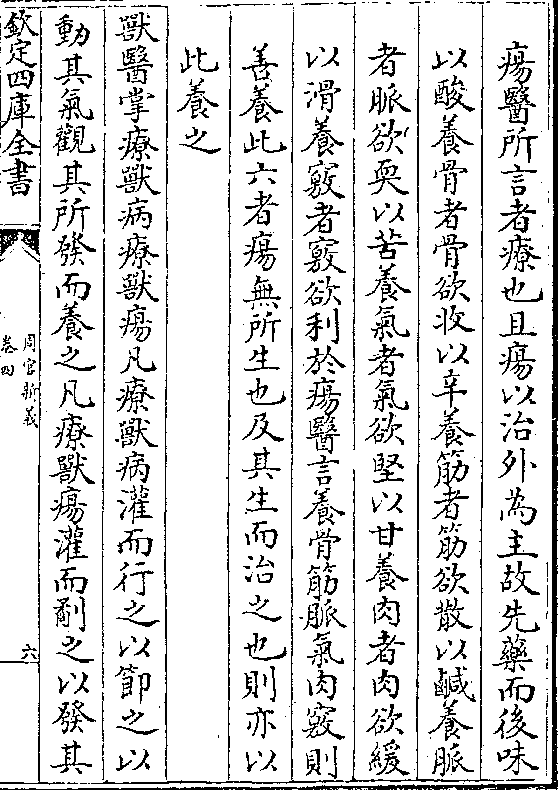 瘍醫所言者療也且瘍以治外為主故先藥而後味
以酸養骨者骨欲收以辛養筋者筋欲散以鹹養脈
者脈欲耎以苦養氣者氣欲堅以甘養肉者肉欲緩
以滑養竅者竅欲利於瘍醫言養骨筋脈氣肉竅則
善養此六者瘍無所生也及其生而治之也則亦以
此養之
獸醫掌療獸病療獸瘍凡療獸病灌而行之以節之以
動其氣觀其所發而養之凡療獸瘍灌而劀之以發其
欽定四庫全書
周官新義
卷四
六